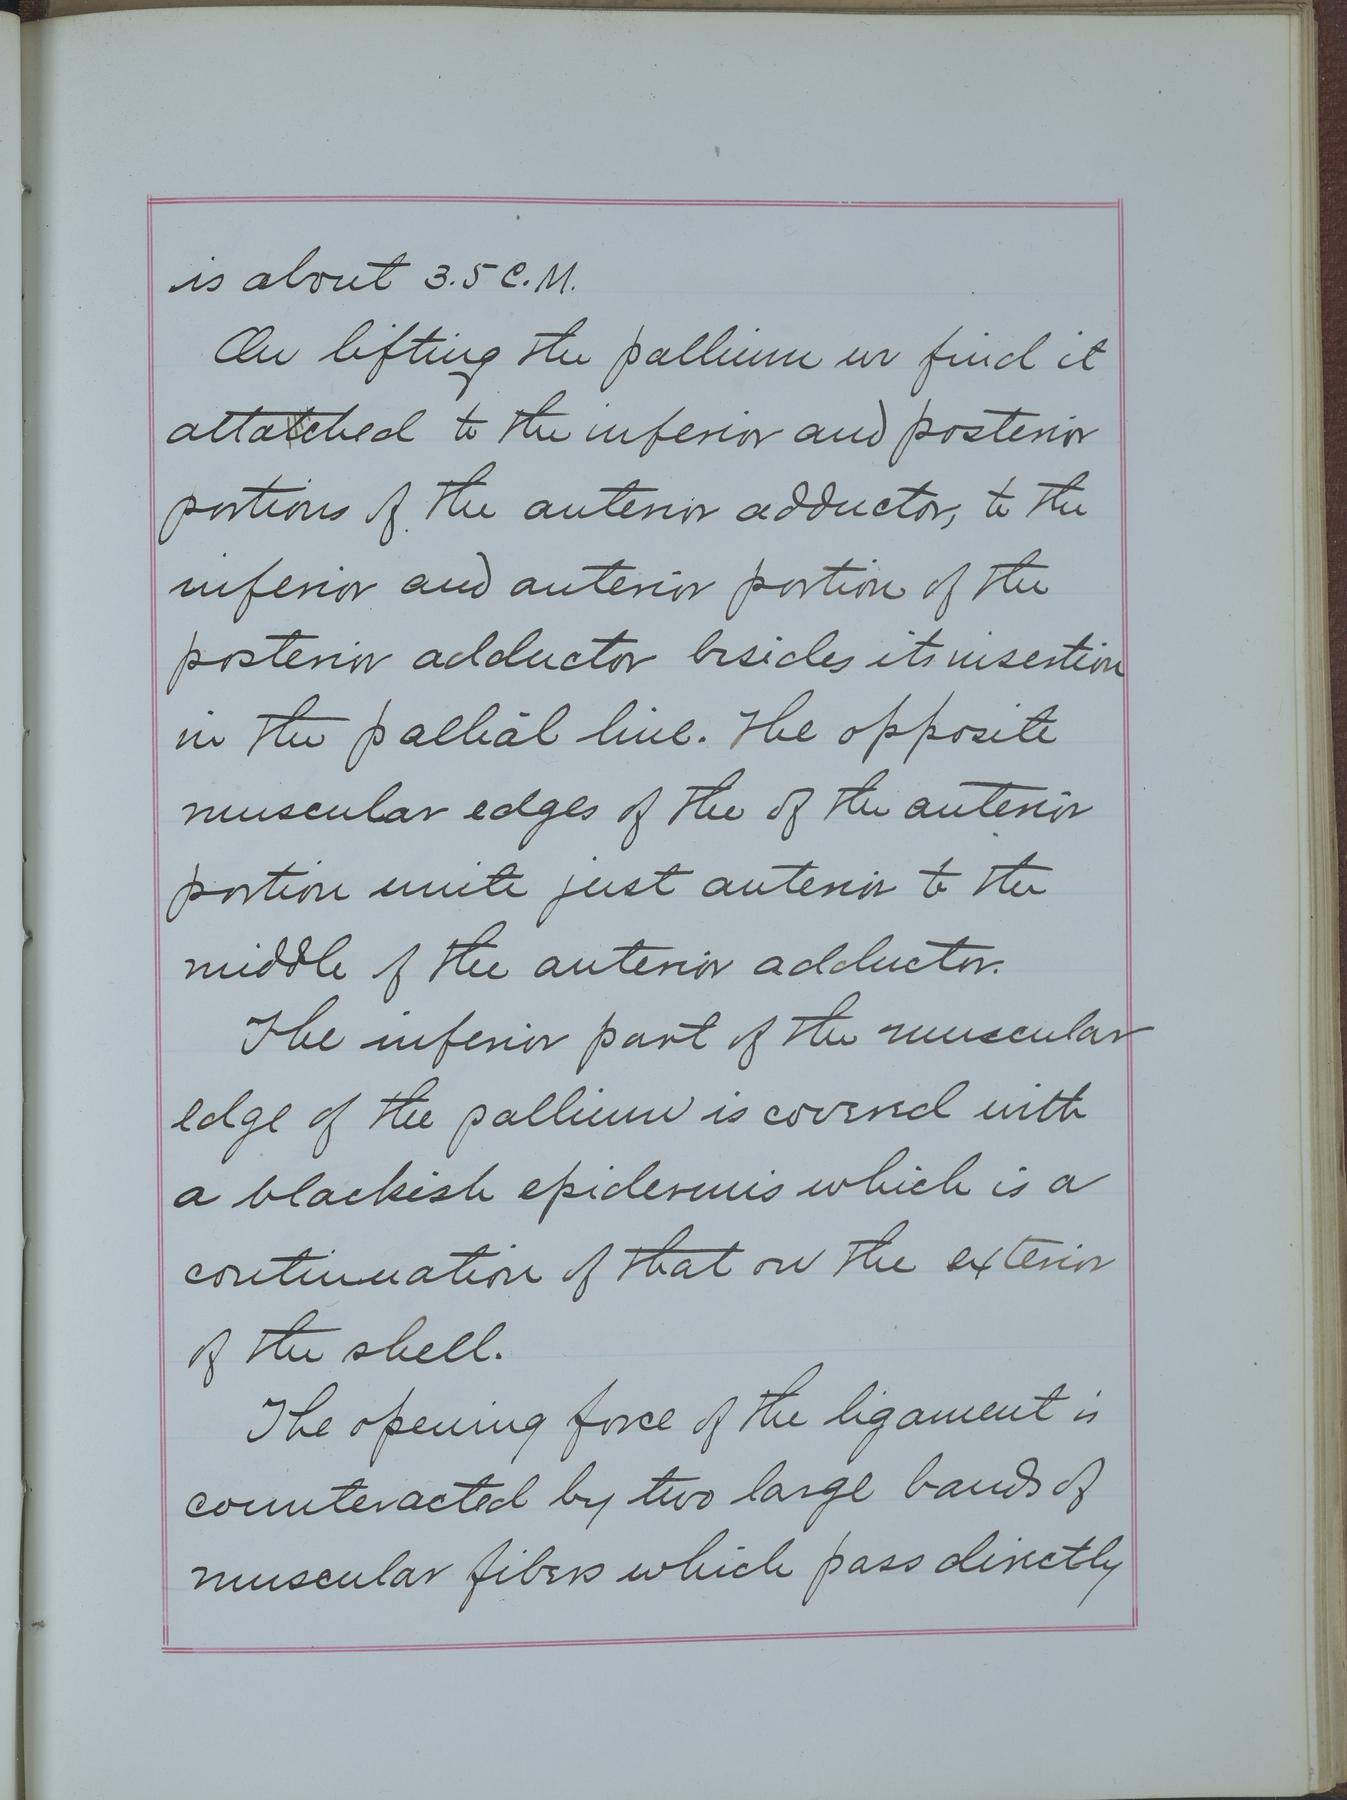 is about 3.5 C.M.
On lifting the pallium we find it
attatched to the inferior and posterior
portions of the anterior adductor, to the
inferior and anterior portion of the
posterior adductor besides its insertion
in the pallial line. The opposite
muscular edges of the of the anterior
portion unite just anterior to the
middle of the anterior adductor.
The inferior part of the muscular
edge of the pallium is covered with
a blackish epidermis which is a
continuation of that on the exterior
of the shell.
The opening force of the ligament is
counteracted by two large bands of
muscular fibers which pass directly